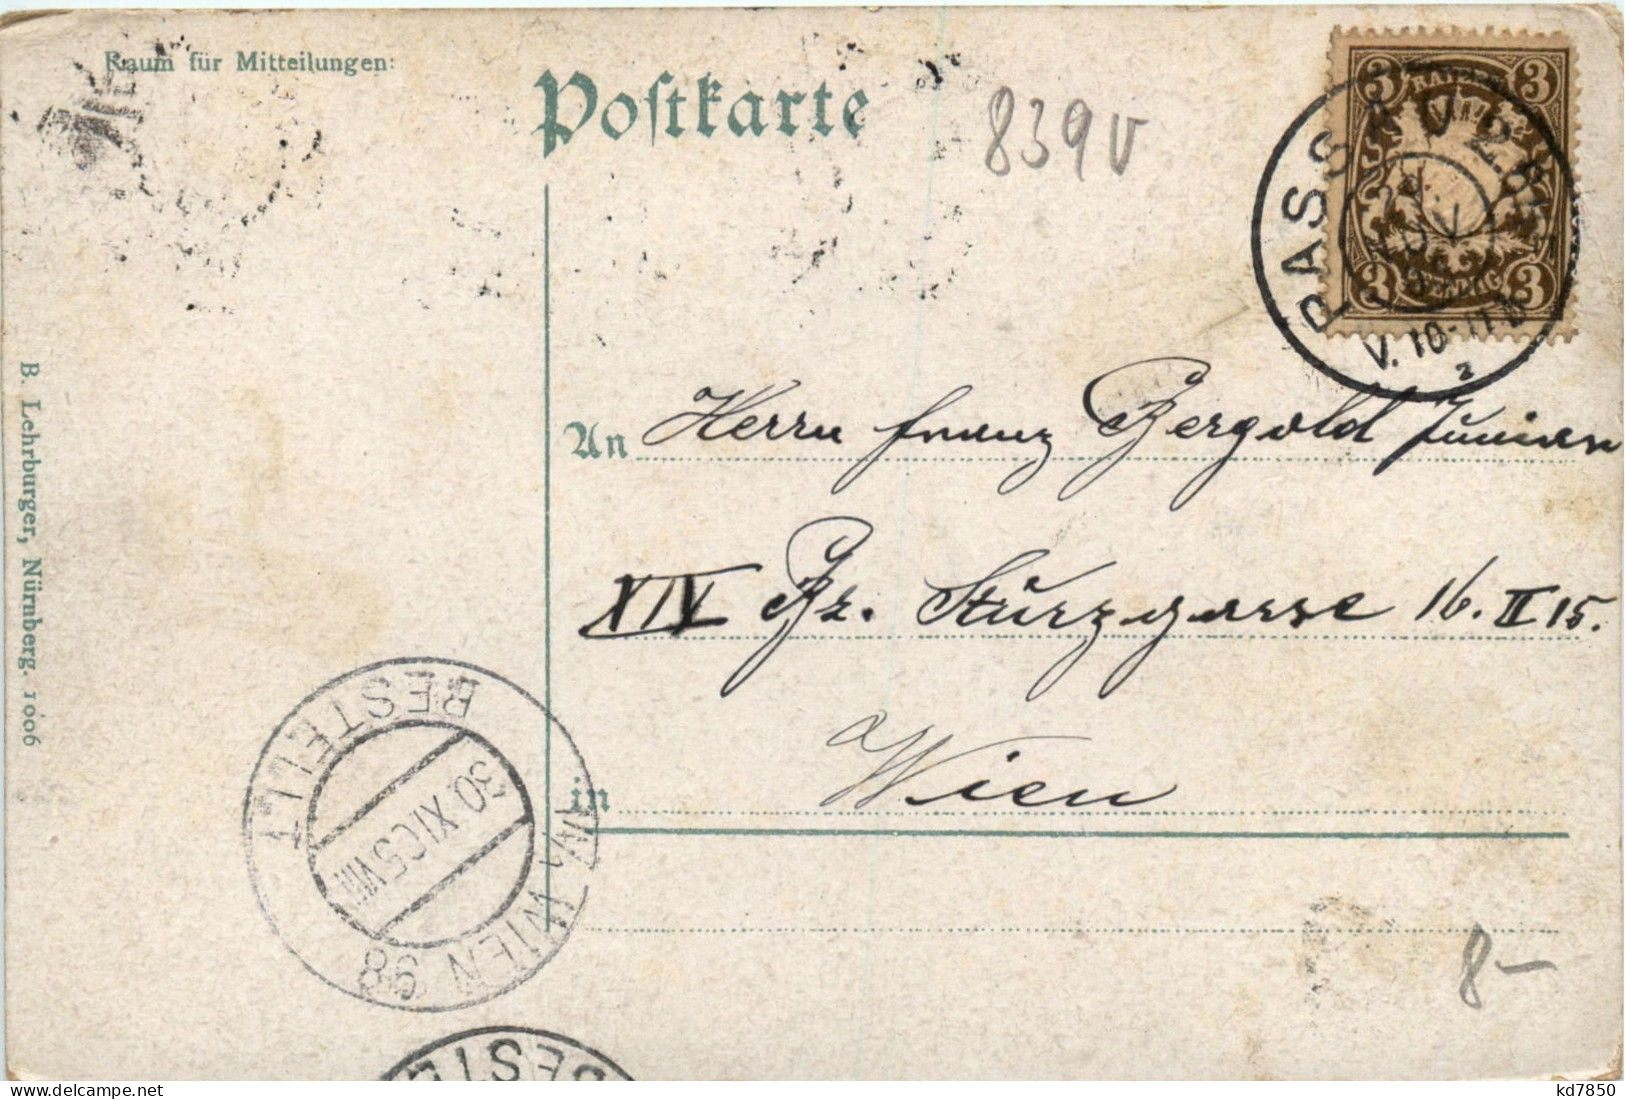 Raum für Mitteilungen:
Postkarte
839 v
BAYERN
3 3
3 3
PFENNIG
PASSAU 2
NOV
V. 10-11
2
An Herrn Franz Bergold Junior
XIV Bz. Sturzgasse 16. II 15.
in Wien
B. Lehrburger, Nürnberg. 1006
BESTELLT
30. XI 05 VIII
WIEN
86
BESTE
8 -
delcampe.net
kd7850